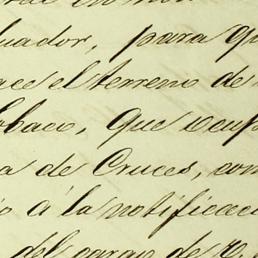 uador, para qu
ace el terreno de
obaco, que ocup
a de Cruces, con
o á la notificaci
del cargo de